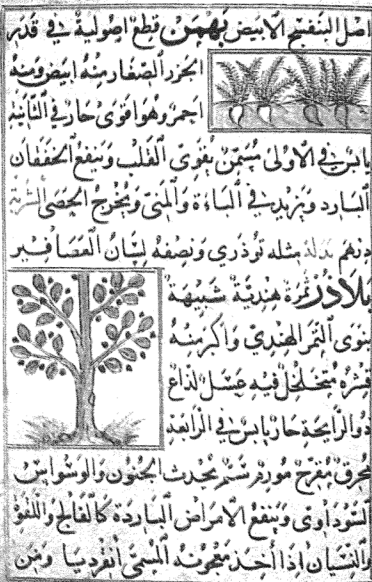 اصل البنفسج الابيض بهمن قطع اصولية في قدر
الجزر الصغار منه ابيض ومنه
احمر وهو اقوى حار في الثانية
يابس في الاولى مسمن يقوى القلب وينفع الخفقان
البارد ويزيد في الباءة والمنى ويخرج الحصى الشربة
درهم بدله مثله توذرى ونصفه لسان العصافير
بلادر ثمرة هندية شبيهة
بنوى التمر الهندي واكبر منه
قشره متخلخل فيه عسل لذاع
ذو الرايحة حار يابس في الرابعة
محرق مقرح مورم سم يحدث الجنون والوسواس
السوداوى وينفع الامراض الباردة كالفالج واللقوة
والنسيان اذا اخذ معجونه المسمى انقرديا ومن